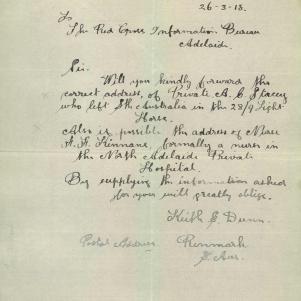 26-3-18.
To
The Red Cross Information Bureau
Adelaide.
Sir.
Will you kindly forward the
correct address, of Private A. C. Stacey
who left Sth Australia in the 23/9 Light
Horse.
Also is possible the address of Miss
A. H. Kinnane, formally a nurse in
the North Adelaide Private
Hospital.
By supplying the information asked
for you will greatly oblige.
Keith S. Dunn.
Postal Address Renmark
S. Aus.